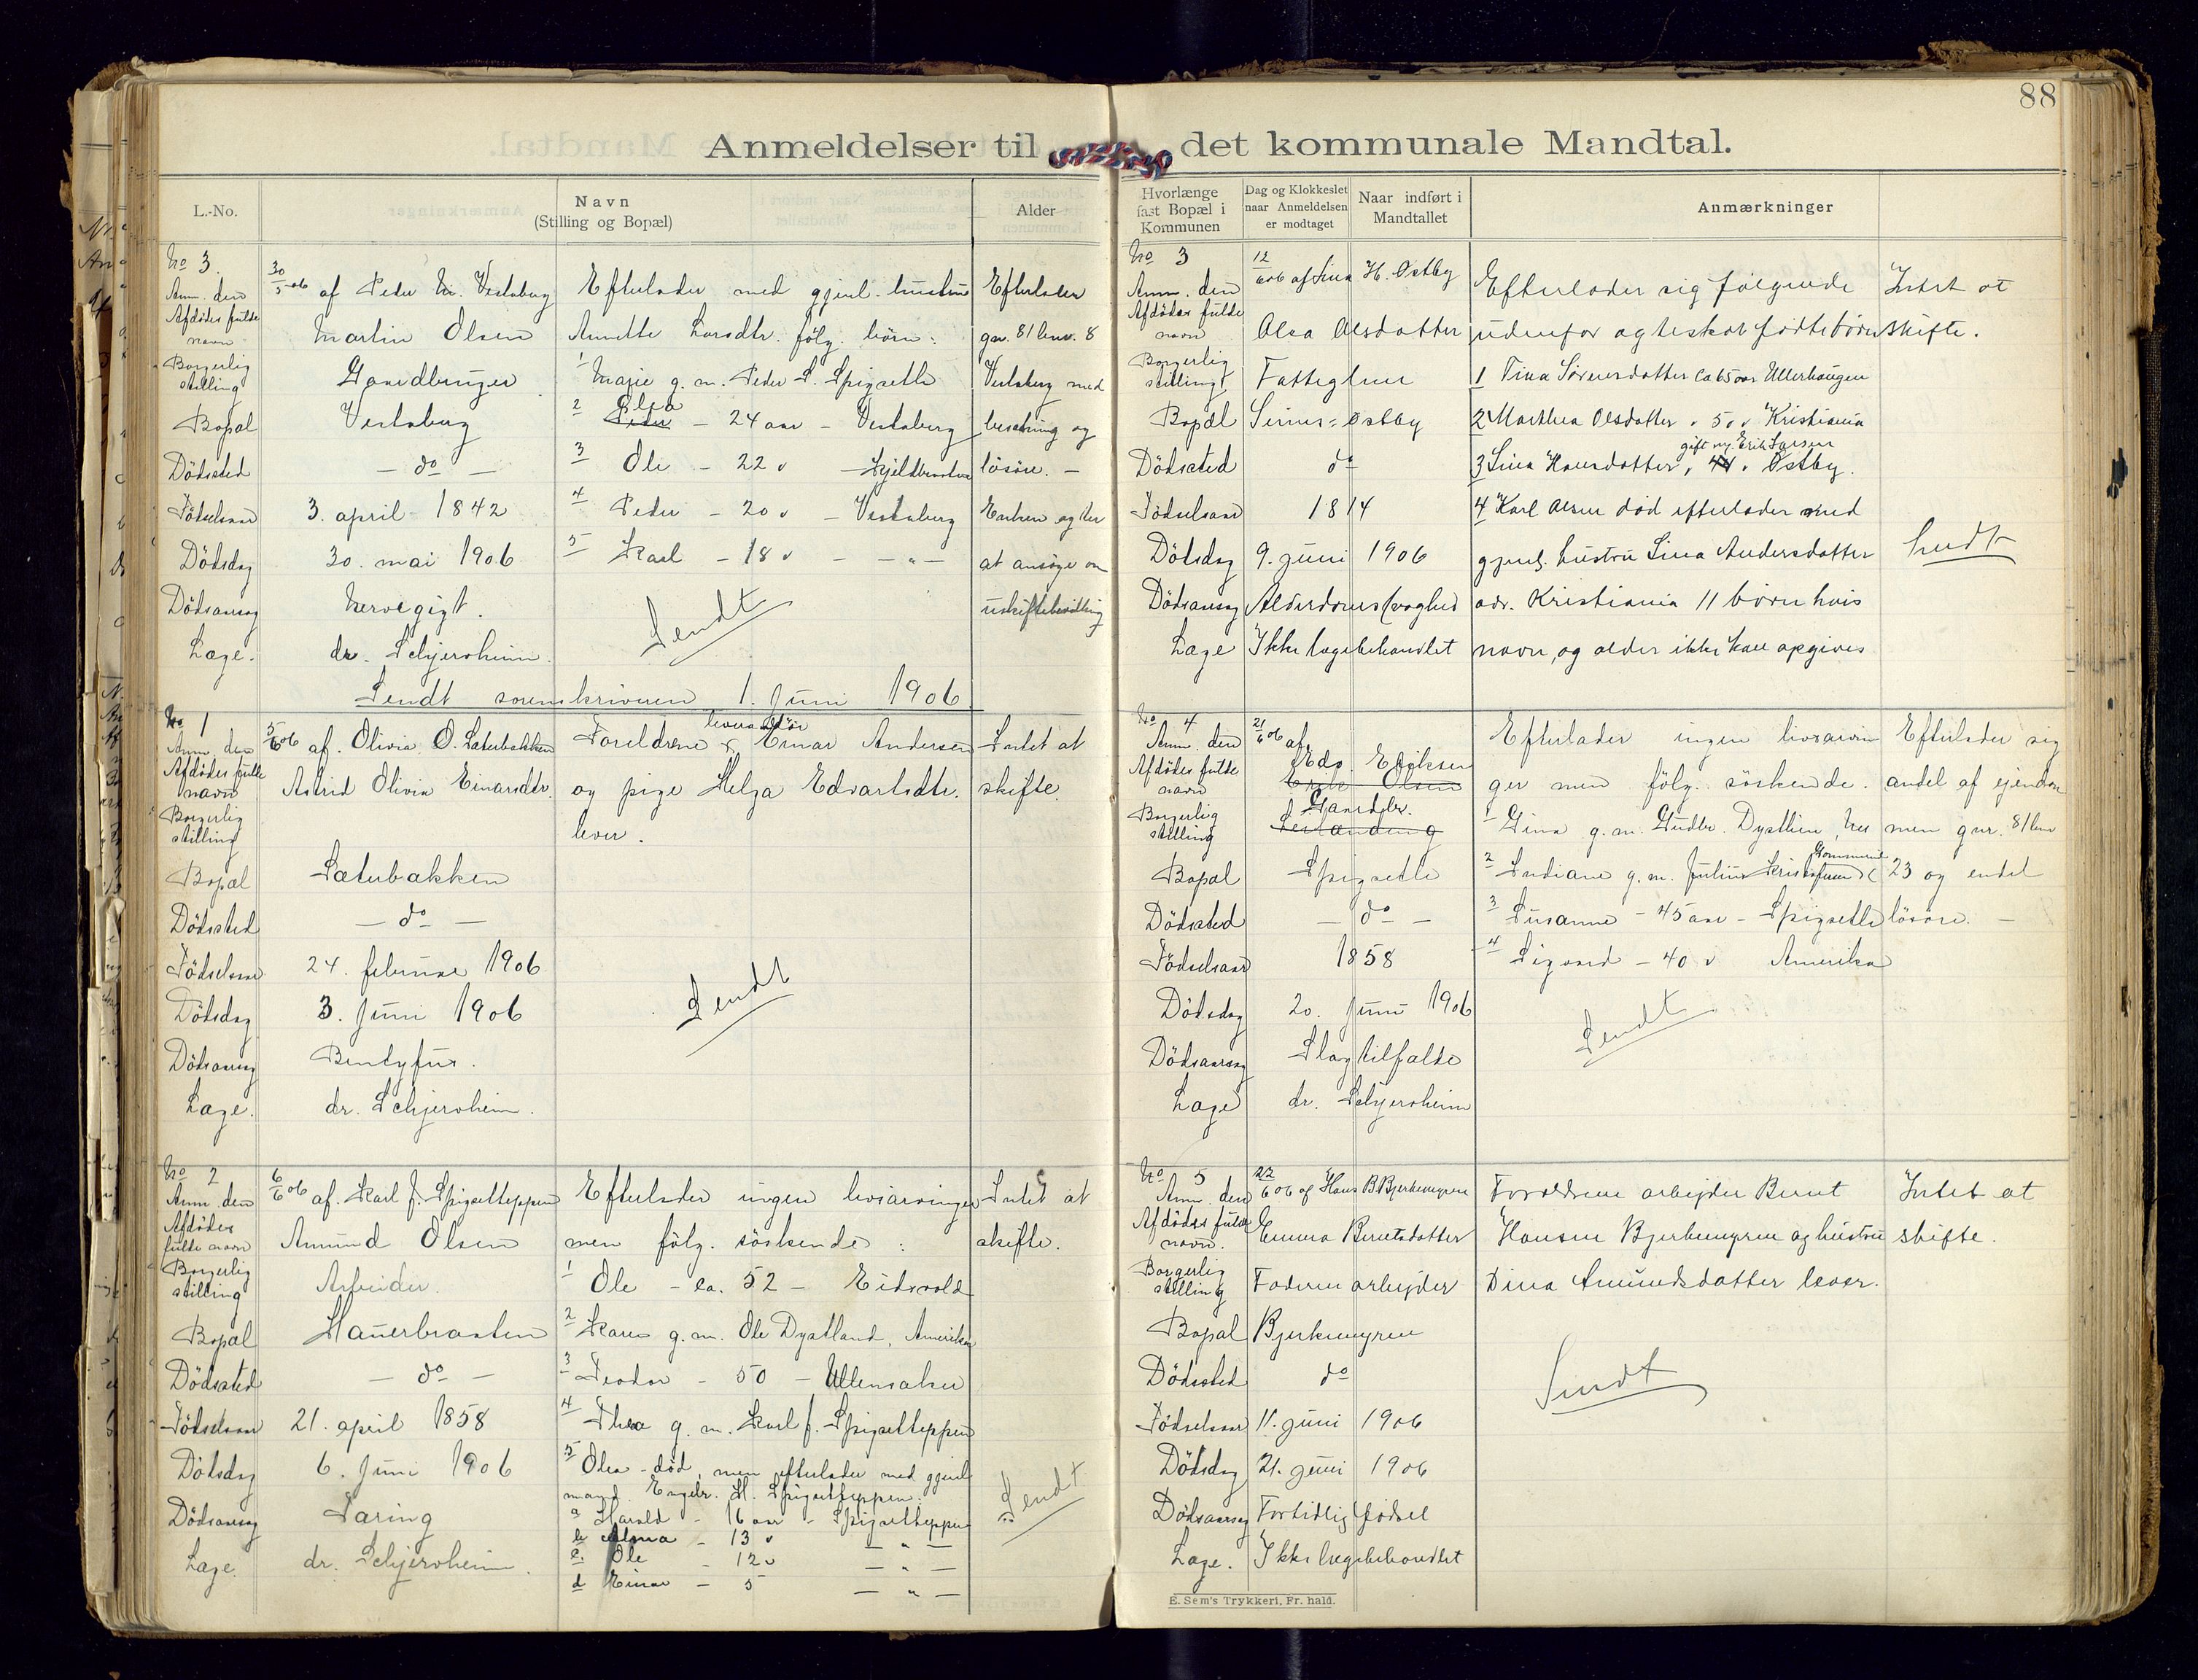 88
Anmeldelser til det kommunale Mandtal.
L.-No.
Navn
(Stilling og Bopæl)
Alder
No 3.
Anm. den 30/5 06 af Peder M. Vestaberg
Afdödes fulde navn Martin Olsen
Borgerlig stilling Gaardbruger
Bopæl Vestaberg
Dödssted — do —
Födselsaar 3. april 1842
Dödsdag 30. mai 1906
Dödsaarsag Nervegigt.
Læge. dr. Schjersheim.
Efterlader med gjenl. hustru
Annette Larsdtr. fölg. börn:
1 Majie g. m. Peder L. Spigseth
2 Peder Olea — 24 aar — Vestaberg
3 Ole — 22 " —
4 Peder — 20 " — Vestaberg
5 Karl — 18 " — " —
Sendt
Efterlader
gnr. 81 bnr. 8
Vestaberg med
besetning og
lösöre. —
Enken agter
at ansöge om
uskiftebevilling
Sendt sorenskriveren 1. Juni 1906
No 1
Anm. den 5/6 06 af. Olivia O. Sæterbakken
Afdödes fulde navn Astrid Olivia Einarsdtr.
Borgerlig stilling
Bopæl Sæterbakken
Dödssted — do —
Födselsaar 24. februar 1906
Dödsdag 3. Juni 1906
Dödsaarsag
Læge. dr. Schjersheim.
Foreldrene Einar Andersen
og pige Helga Edvartsdtr.
lever.
Sendt
Intet at
skifte.
No 2
Anm. den 6/6 06 af. Karl J. Spigsetteppen
Afdödes fulde navn Amund Olsen
Borgerlig stilling Arbeider.
Bopæl Hauerbraaten
Dödssted — do —
Födselsaar 21. april 1858
Dödsdag 6. Juni 1906
Dödsaarsag Tæring
Læge. dr. Schjersheim.
Efterlader ingen livsarvinger
men fölg. söskende:
1 Ole — ca. 52 — Eidsvold
2 Karen g. m. Ole Dystland, Amerika
3 Teodor — 50 — Ullensaker
4 Thea g. m. Karl J. Spigsetteppen
5 Olea — död, men efterlader med gjenl.
mand Engebr. H. Spigsetteppen:
a Harald — 16 aar — Spigsetteppen
b Alma — 13 " — " —
c. Ole — 12 " — " —
d Einar — 5 — " —
Intet at
skifte.
Sendt
Hvorlænge
fast Bopæl i
Kommunen
Dag og Klokkeslet
naar Anmeldelsen
er modtaget
Naar indført i
Mandtallet
Anmærkninger
No 3
Anm. den 12/6 06 af Lina H. Østby
Afdödes fulde navn Olea Olsdatter
Borgerlig stilling Fattiglem
Bopæl Sernes=østby
Dödssted do
Födselsaar 1814
Dödsdag 9. juni 1906
Dödsaarsag Alderdomssvaghed
Læge Ikke lægebehandlet
Efterlader sig følgende
udenfor ægteskab fødte børn
1 Tina Sörensdatter ca 65 aar Ullerhaugen
2 Marthea Olsdatter " 50 " Kristiania
gift m. Erik Larsen
3 Lina Hansdatter, 44 " Østby.
4 Karl Olsen død efterlader med
gjenl. hustru Lina Andersdatter
adr. Kristiania 11 børn hvis
navn, og alder ikke kan opgives
Intet at
skifte.
Sendt
No 4
Anm. den 21/6 06 af.
Afdödes fulde navn Edv. Eriksen
Erik Olsen
Borgerlig stilling Gaardbr.
Bopæl Spigseth
Dödssted — do —
Födselsaar 1858
Dödsdag 20. Juni 1906
Dödsaarsag Slagtilfælde
Læge dr. Schjersheim
Efterlader ingen livsarvin
ger men fölg. söskende.
1 Gina g. m. Gudbr. Dysthen, her
2 Indiane g. m. Julius Kristofersen
3 Susanne — 45 aar — Spigseth
4 Sigvard — 40 " Amerika
Sendt
Efterlader sig
andel af ejendom
men gnr. 81 bnr
23 og endel
lösöre. —
No 5
Anm. den 22/6 06 af Hans B. Bjerkemyren
Afdödes fulde navn. Emma Berntsdatter
Borgerlig stilling Faderen arbejder
Bopæl Bjerkemyren
Dödssted do
Födselsaar 11. juni 1906
Dödsdag 21. juni 1906
Dödsaarsag Fortidlig fødsel
Læge. Ikke lægebehandlet
Forældrene arbejder Bernt
Hansen Bjerkemyren og hustru
Dina Amundsdatter lever.
Sendt
Intet at
skifte.
E. Sem's Trykkeri, Fr.hald.